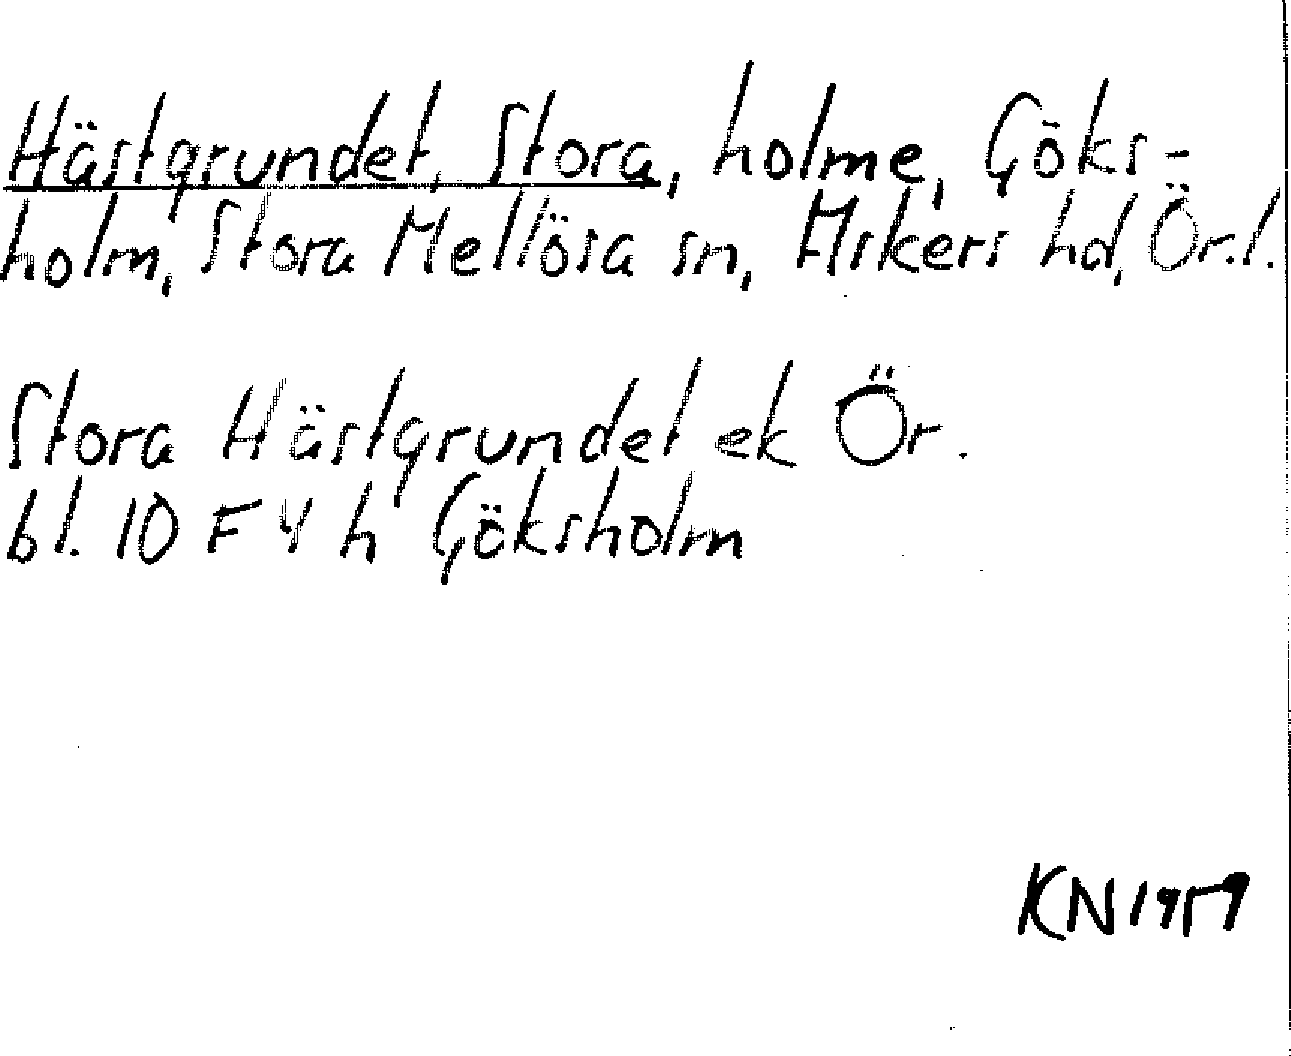 Hästgrundet, Stora, holme, Göks-
holm, Stora Mellösa sn, Askers hd, Ör.l.
Stora Hästgrundet ek Ör.
bl. 10 F 4 h Göksholm
KN 1959